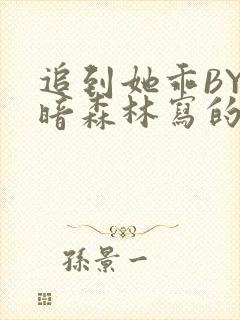 追到她乖BY
暗森林寫的
孫景一